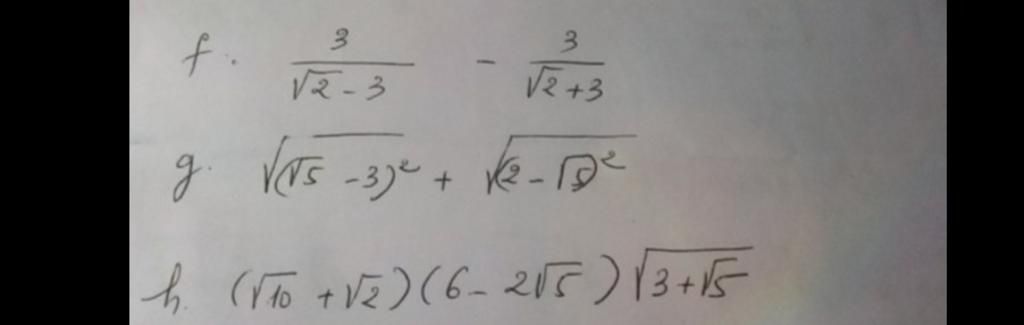 f. \frac{3}{\sqrt{2}-3} - \frac{3}{\sqrt{2}+3}
g. \sqrt{(\sqrt{5}-3)^2} + \sqrt{(2-\sqrt{5})^2}
h. (\sqrt{10}+\sqrt{2})(6-2\sqrt{5})\sqrt{3+\sqrt{5}}